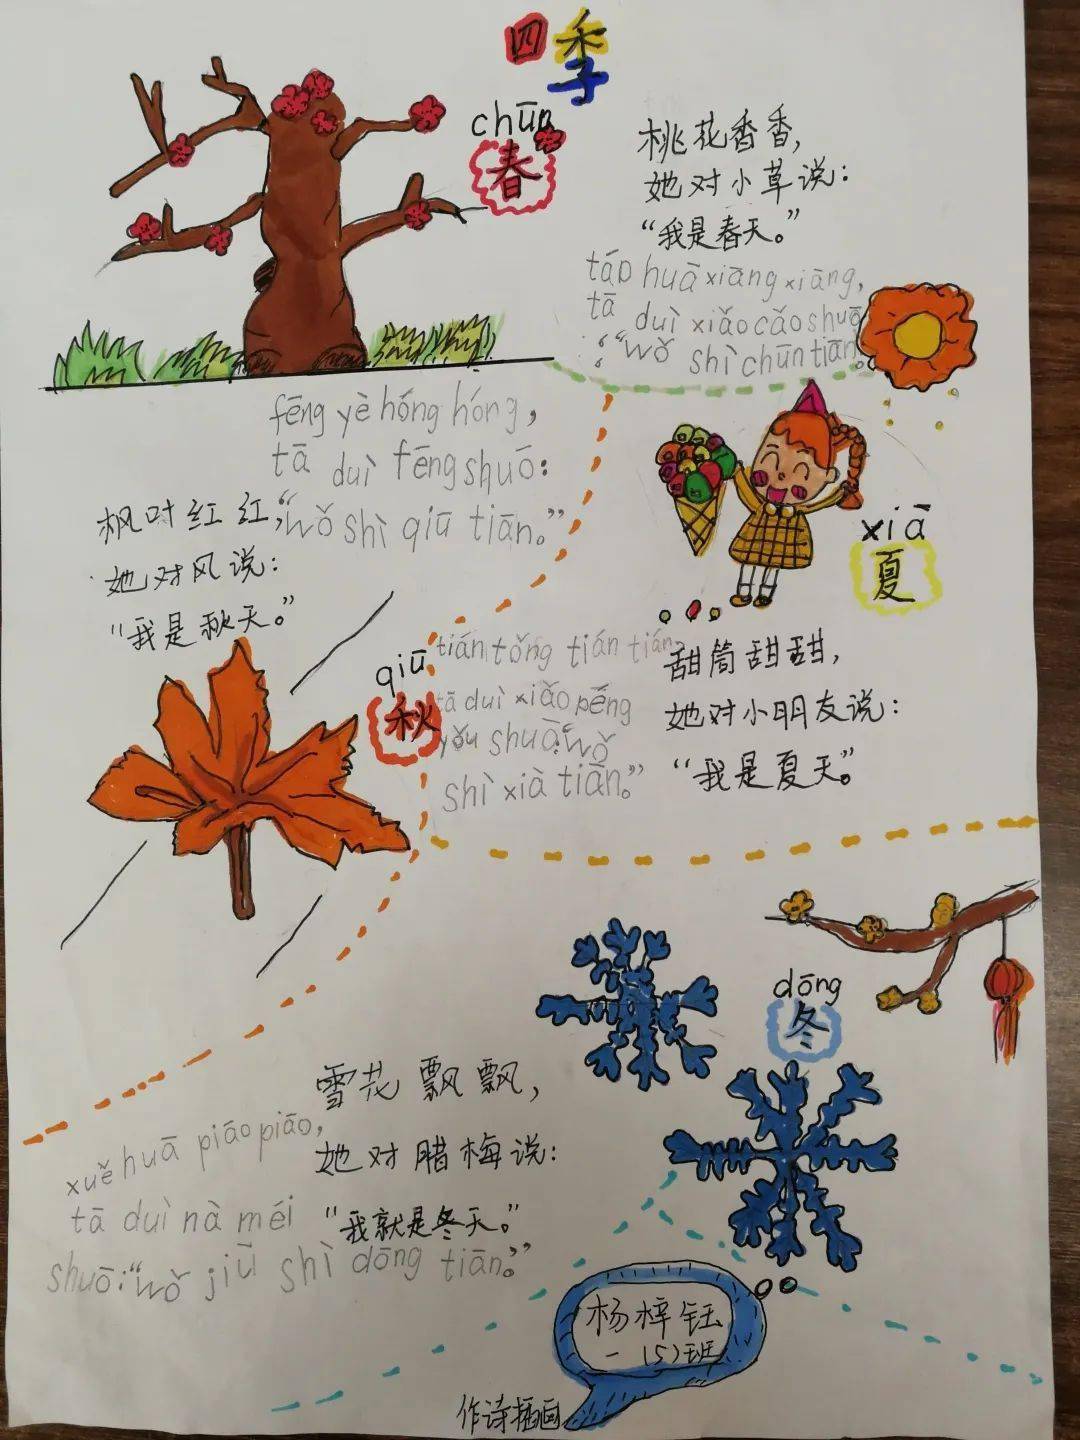 四季
chūn
春
桃花香香,
她对小草说:
“我是春天。”
táo huā xiāng xiāng,
tā duì xiǎo cǎo shuō
:“wǒ shì chūn tiān。
xiā
夏
甜筒甜甜,
她对小朋友说:
“我是夏天”。
tián tǒng tián tián,
tā duì xiǎo péng
yǒu shuā:“wǒ
shì xià tiān。”
fēng yè hóng hóng,
tā duì fēng shuō:
“wǒ shì qiū tiān。”
枫叶红红,
她对风说:
“我是秋天。”
qiū
秋
dōng
冬
雪花飘飘,
她对腊梅说:
“我就是冬天。”
xuě huā piāo piāo,
tā duì nà méi
shuō:“wǒ jiū shì dōng tiān。”
杨梓钰
一(5)班
作诗插画